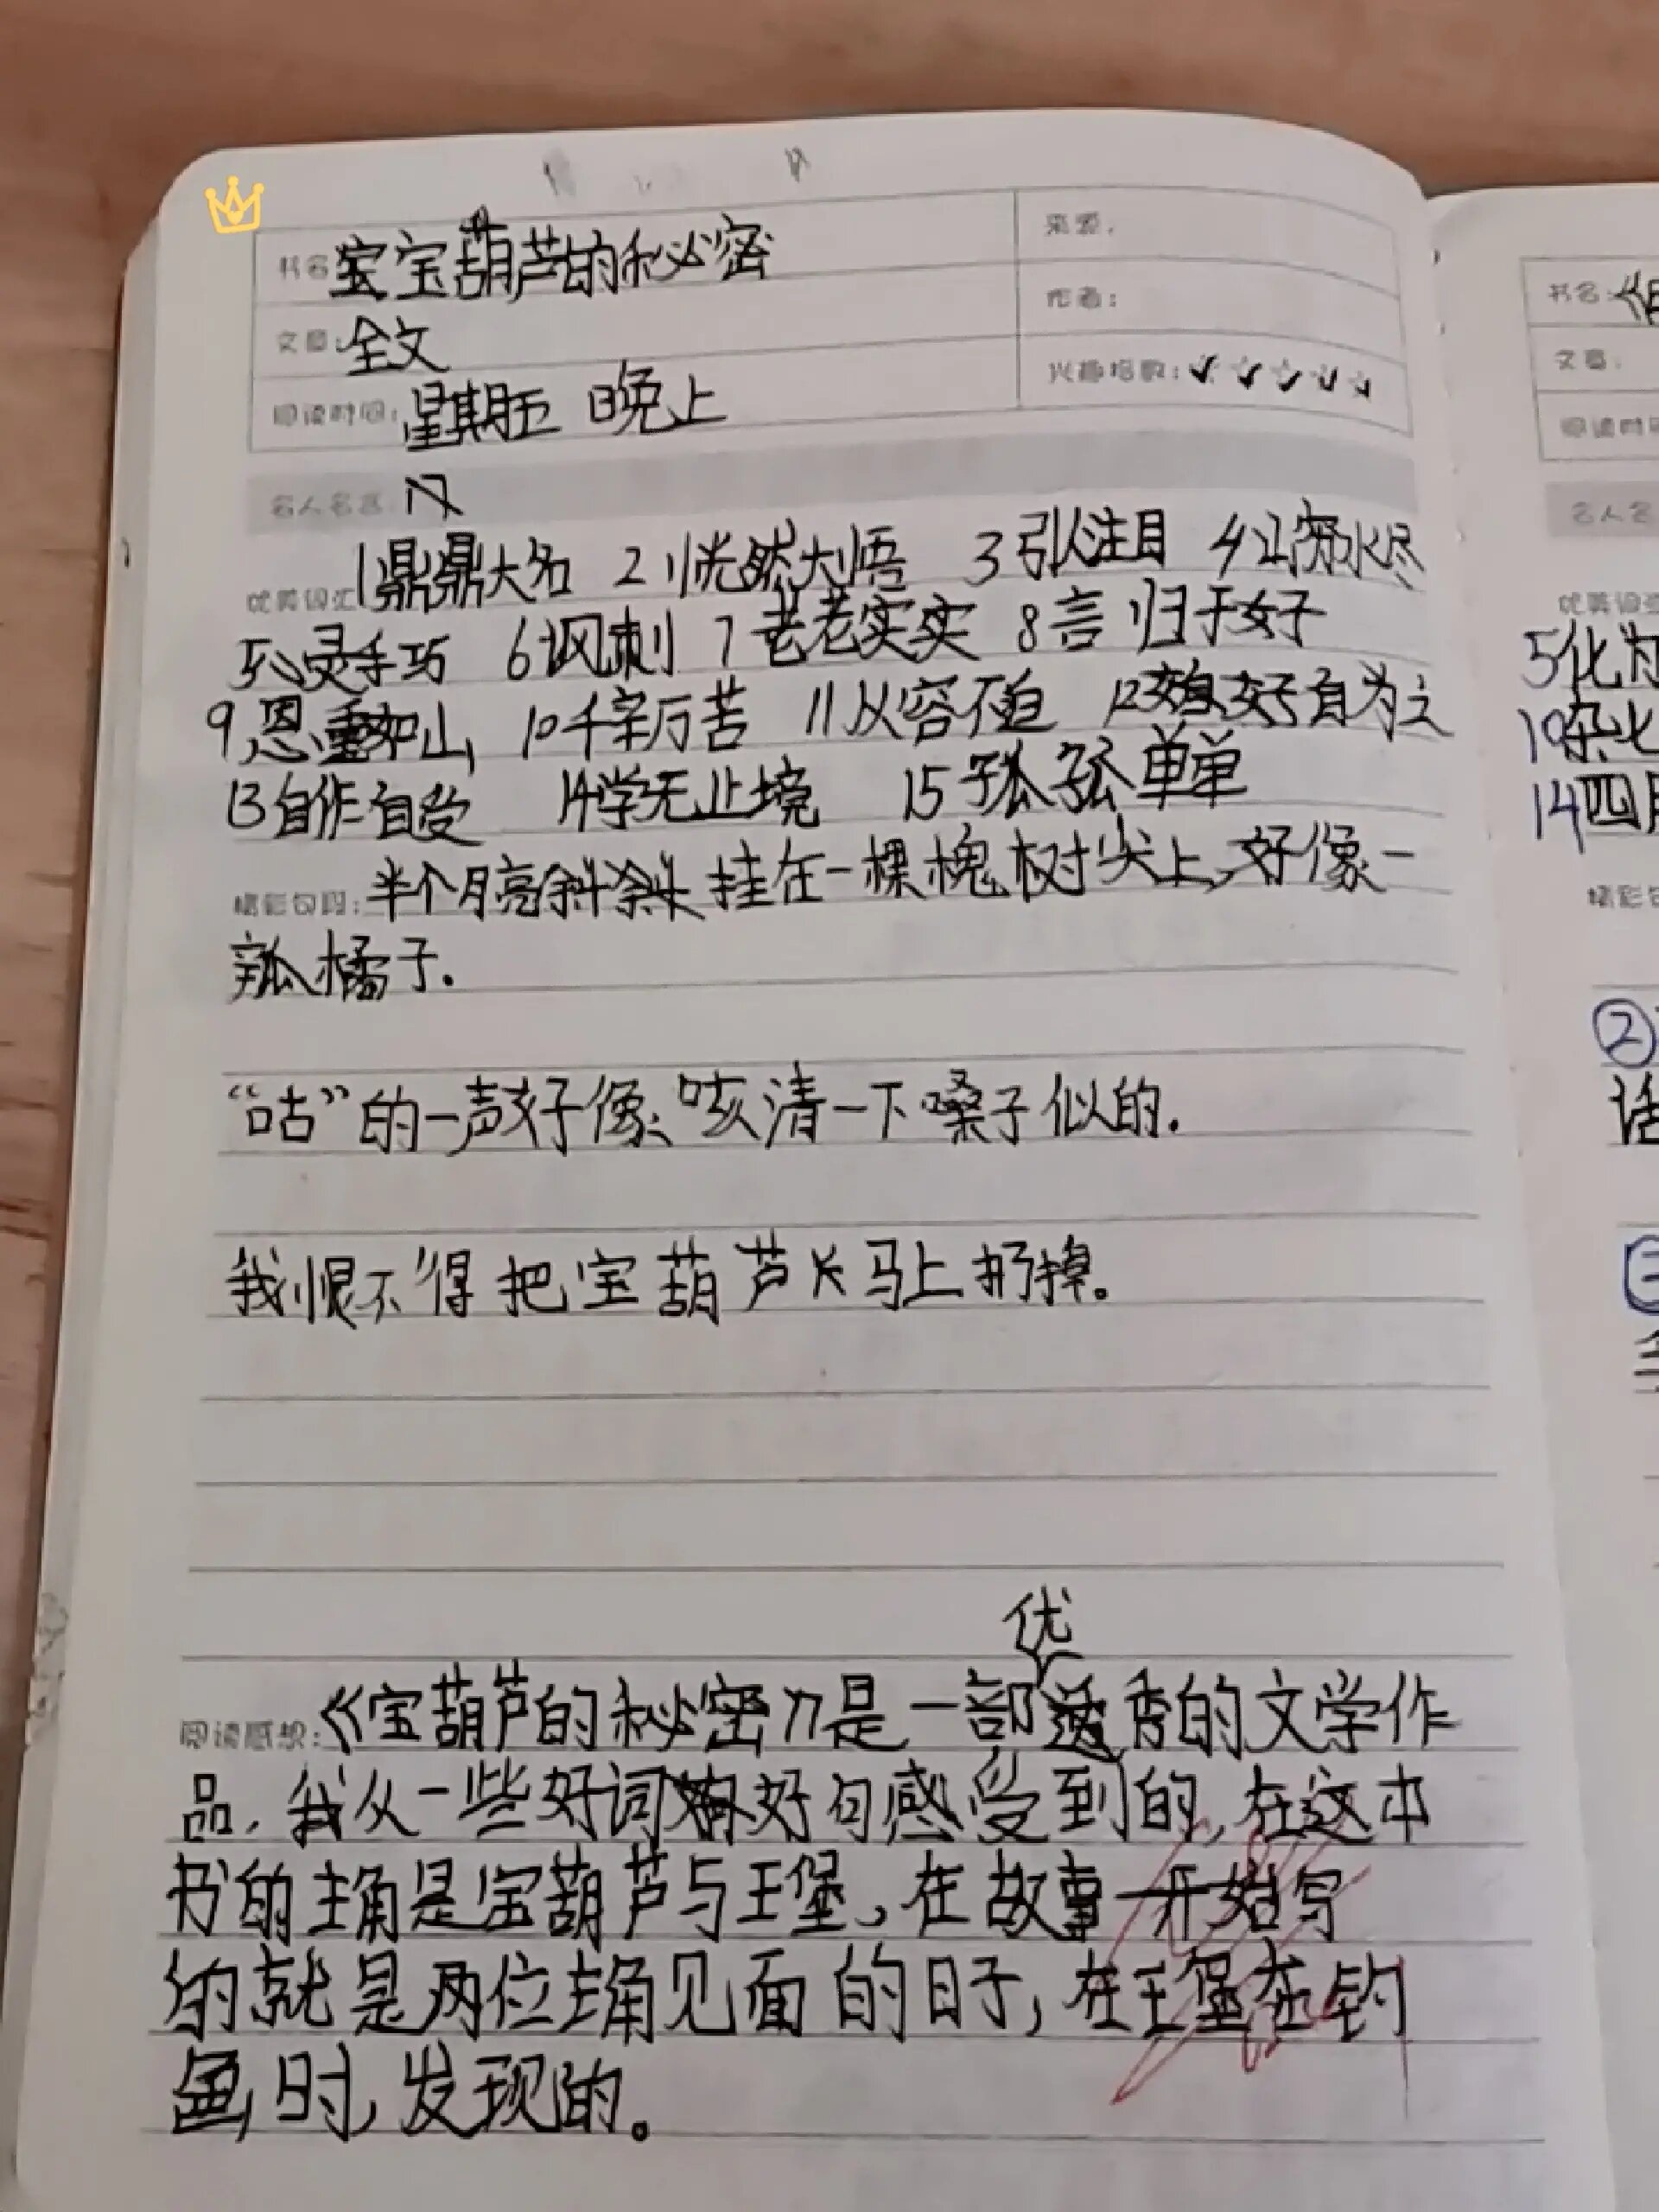 书名：宝宝葫芦的秘密
来源：
文章：全文
作者：
阅读时间：星期五 晚上
兴趣指数：
名人名言
优美词汇 1鼎鼎大名 2恍然大悟 3引人注目 4山穷水尽
5心灵手巧 6讽刺 7老老实实 8言归于好
9恩重如山 10千辛万苦 11从容不迫 12好自为之
13自作自受 14学无止境 15孤孤单单
精彩句段：半个月亮斜斜挂在一棵槐树尖上，好像一
瓣橘子.
“咕”的一声好像咳清一下嗓子似的.
我恨不得把宝葫芦马上扔掉。
优
阅读感想：《宝葫芦的秘密》是一部秀的文学作
品.我从一些好词好句感受到的,在这本
书的主角是宝葫芦与王堡,在故事一开始写
的就是两位主角见面的日子,在王堡在钓
鱼,时,发现的。
书名：
文章：
阅读时间
名人名
优美词汇
5化为
14四月
精彩句
②
话